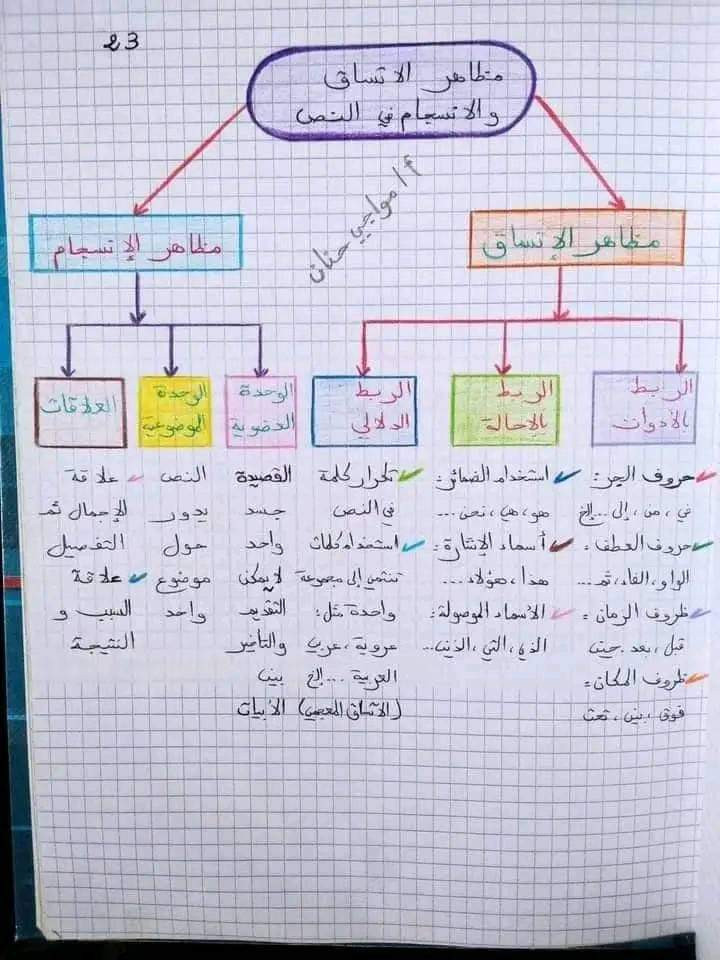 23
مظاهر الاتساق
والانسجام في النص
أ/ مواجبي حنان
مظاهر الإتساق
مظاهر الإنسجام
الربط
بالأدوات
حروف الجر:
في، من، إلى ... إلخ
حروف العطف:
الواو، الفاء، ثم ...
ظروف الزمان:
قبل، بعد، حين
ظروف المكان:
فوق، بين، تحت
الربط
بالإحالة
استخدام الضمائر:
هو، هي، نحن ...
أسماء الإشارة:
هذا، هؤلاء ...
الأسماء الموصولة:
الذي، التي، الذين ...
الربط
الدلالي
تكرار كلمة
في النص
استخدام كلمات
تنتمي إلى مجموعة
واحدة مثل:
عروبة، عربي
العربية ... إلخ
(الاتساق المعجمي)
الوحدة
العضوية
القصيدة
جسد
واحد
لا يمكن
التقديم
والتأخير
بين
الأبيات
الوحدة
الموضوعية
النص
يدور
حول
موضوع
واحد
العلاقات
علاقة
الإجمال ثم
التفصيل
علاقة
السبب و
النتيجة